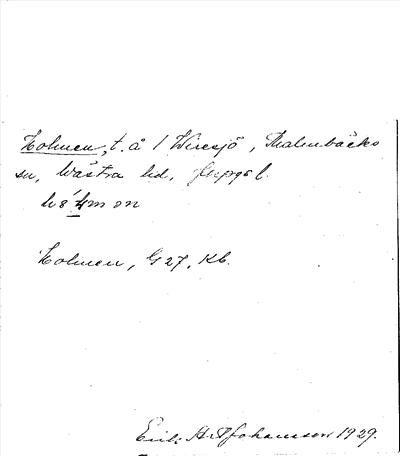 Holmen, t. å / Wiresjö, Malmbäcks
sn, Wästra hd,
Holmen, G 27, Kb.
Erik Johansson 1929.